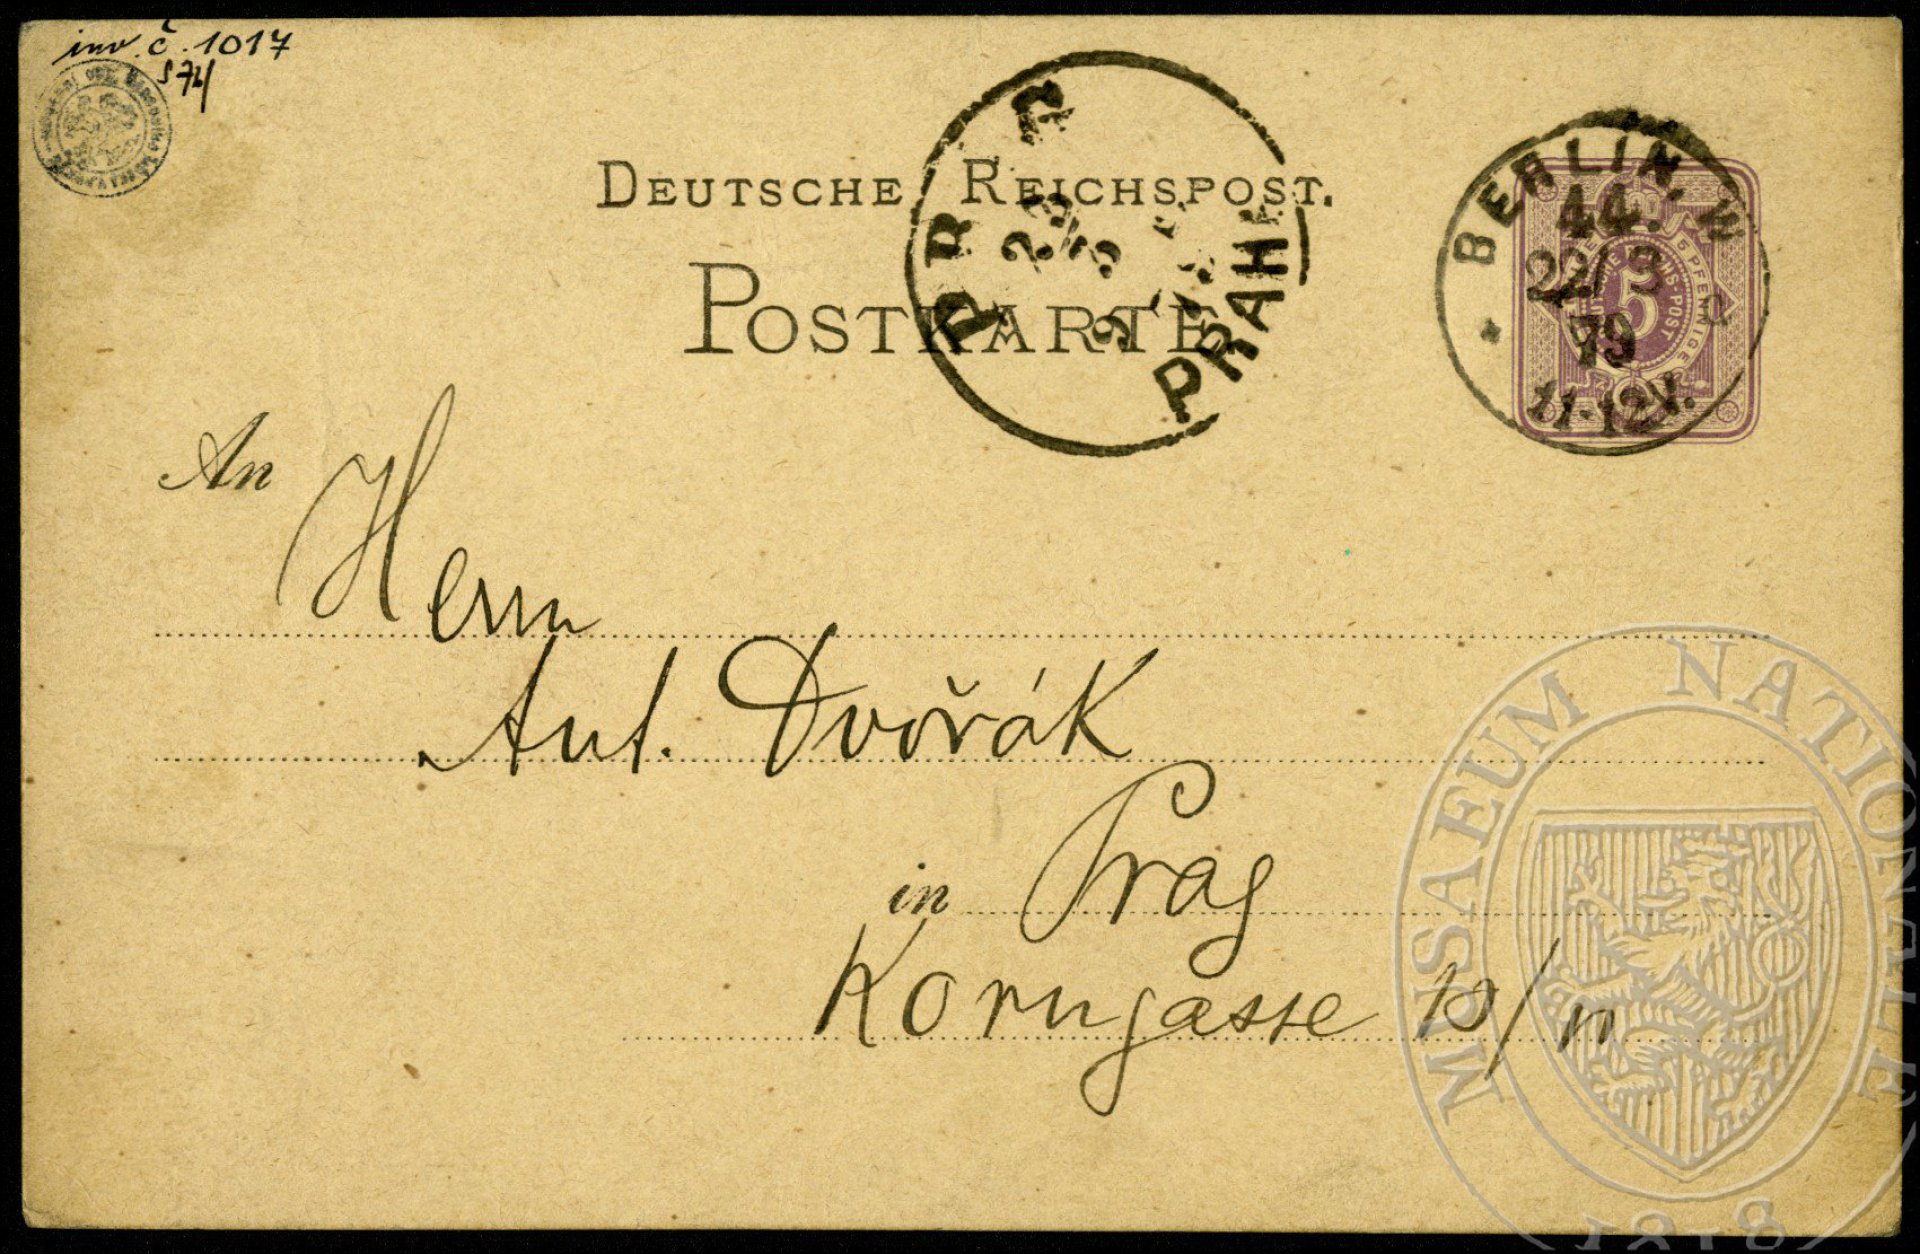 inv. č. 1017
S 76/
DEUTSCHE REICHSPOST.
POSTKARTE
PRAG
23
3
PRAHA
BERLIN, W
44.
22/3
79
11-12V.
5 PFENNIGE
5
An Herrn
Ant. Dvořák
in Prag
Korngasse 10/II
MUSAEUM NATIONALE
1818